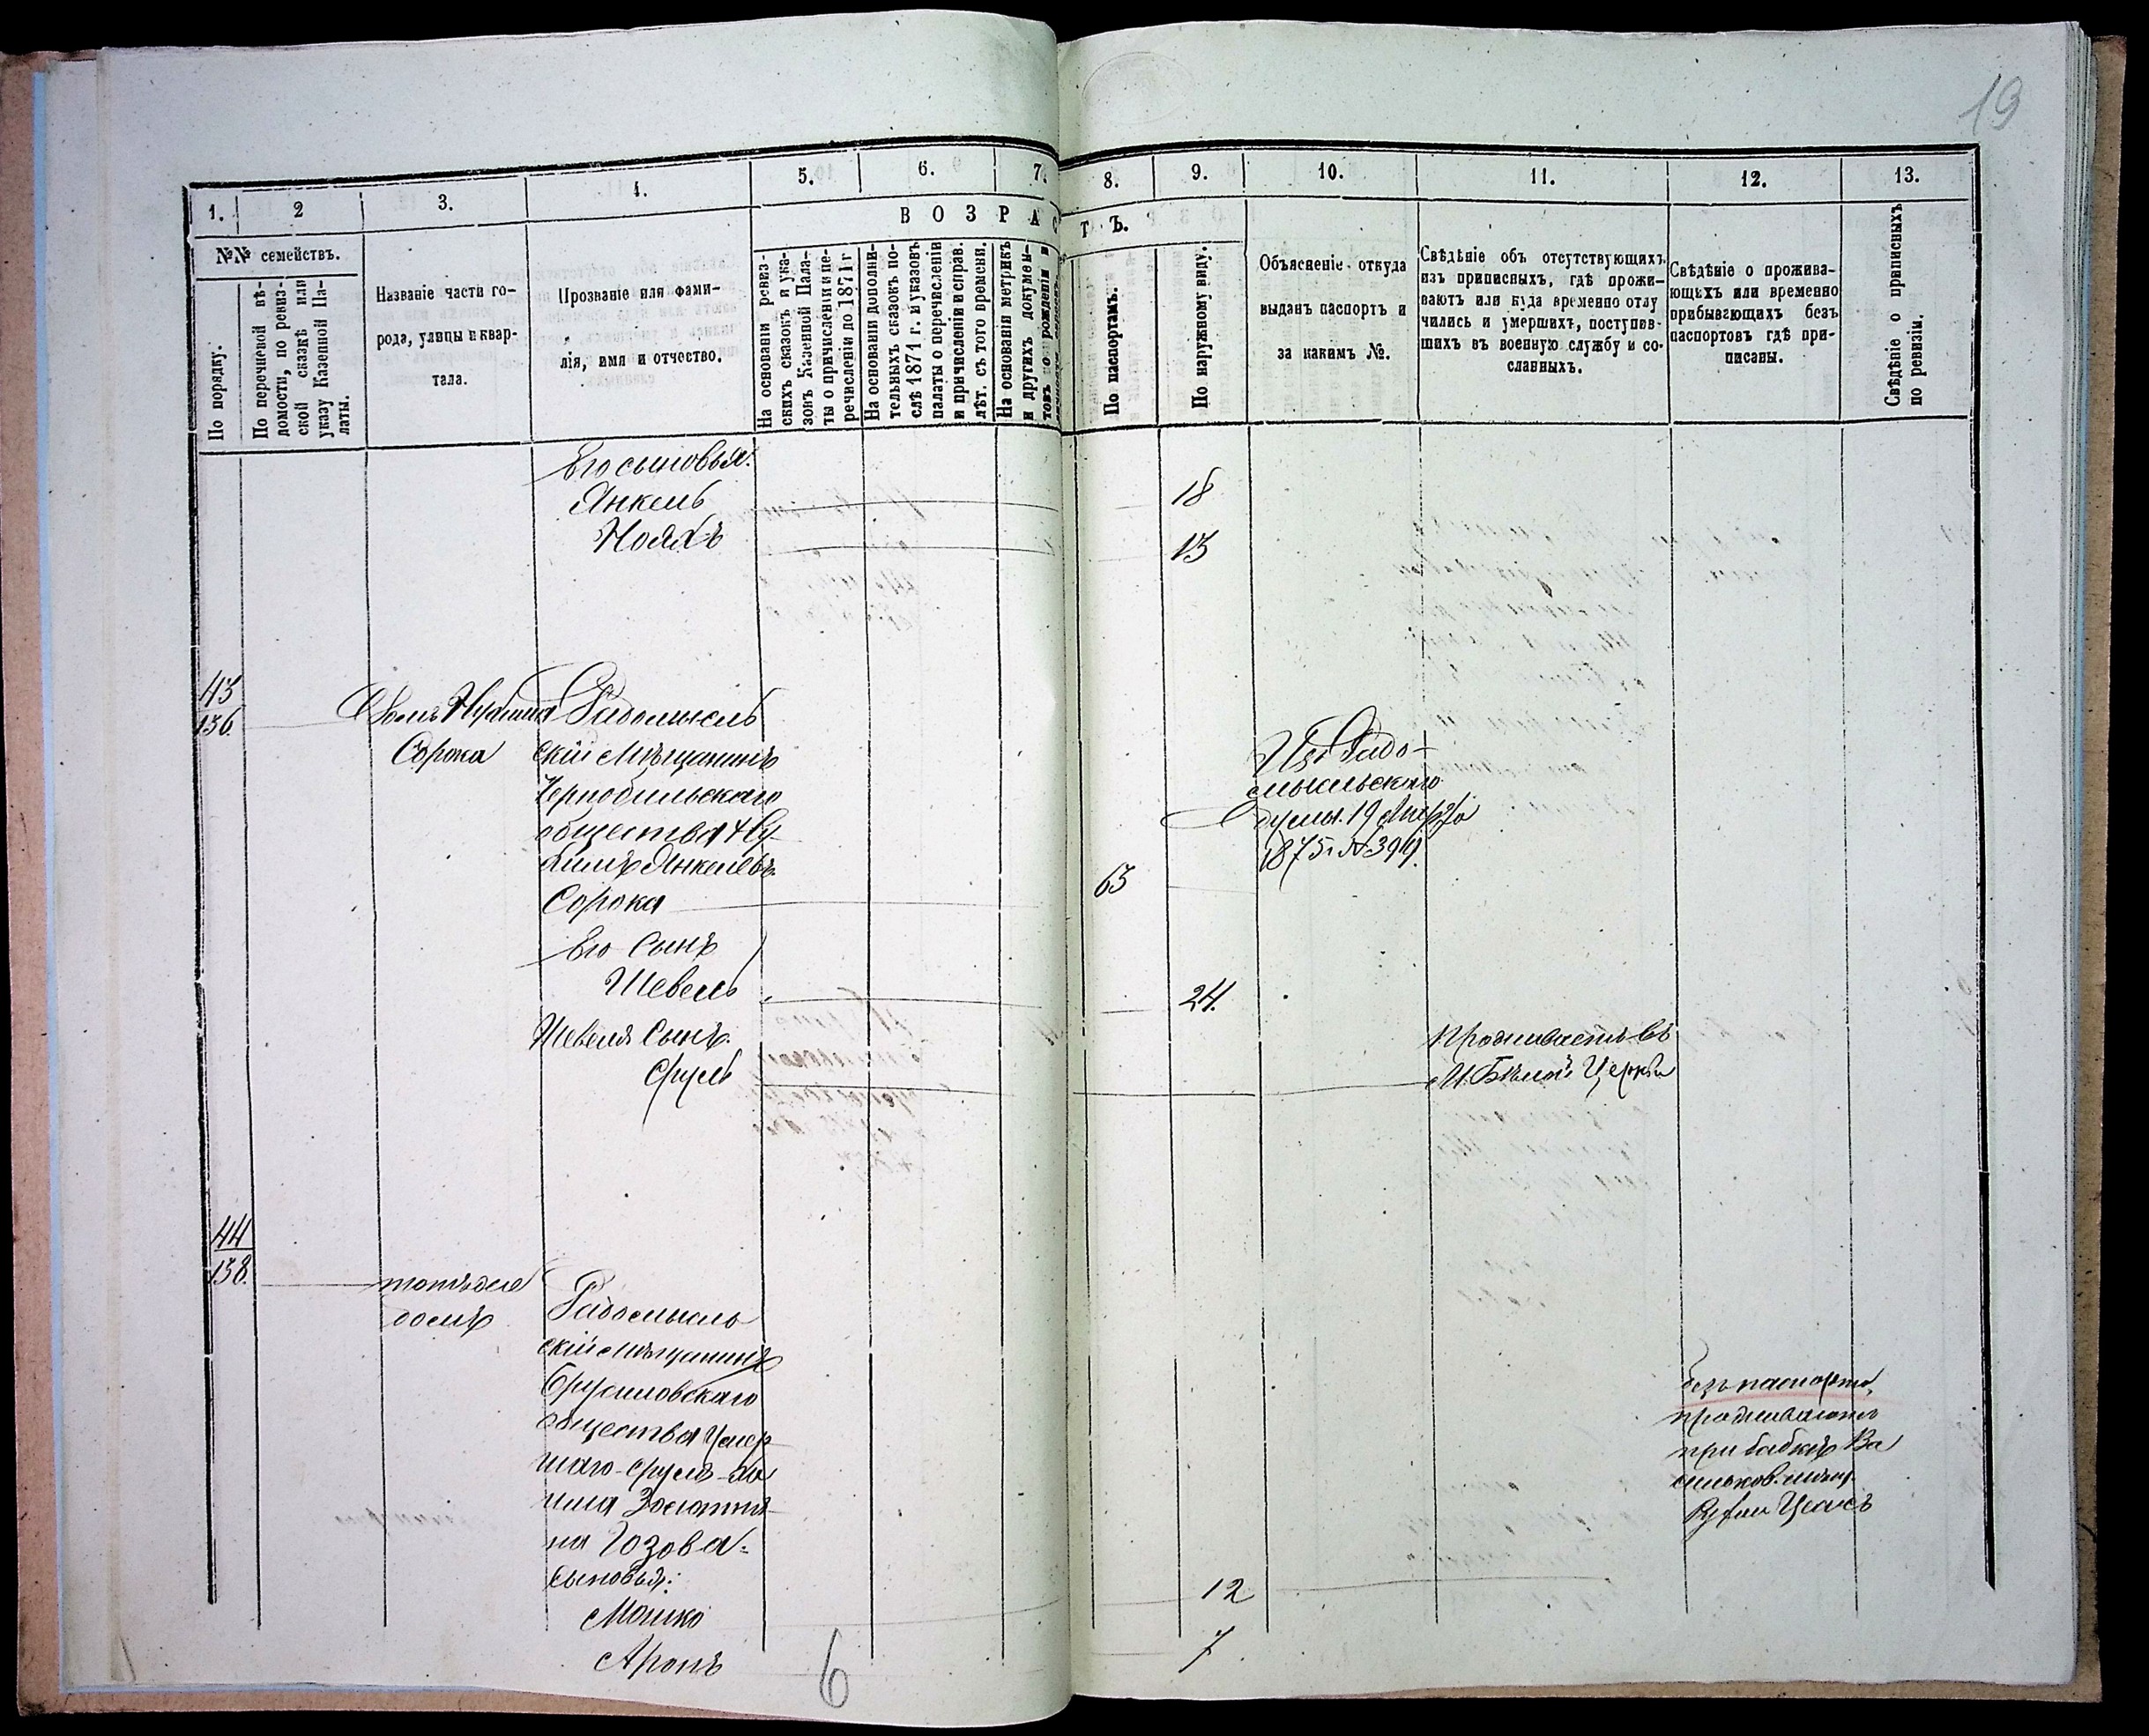 19
1.
2
3.
4.
5.
6.
7.
8.
9.
10.
11.
12.
13.
№№ семействъ.
ВОЗРАСТЪ.
По порядку.
По перечневой вѣ-
домости, по ревиз-
ской сказкѣ или
указу Казенной Па-
латы.
Названіе части го-
рода, улицы и квар-
тала.
Прозваніе или фами-
лія, имя и отчество.
На основаніи ревиз-
скихъ сказокъ и ука-
зовъ Казенной Пала-
ты о причисленіи и пе-
речисленіи до 1871 г
На основаніи дополни-
тельныхъ сказокъ по-
слѣ 1871 г. и указовъ
палаты о перечисленіи
и причисленіи и справ.
лѣт. съ того времени.
На основаніи метрикъ
и другихъ докумен-
товъ о рожденіи и
По паспортамъ.
По наружному виду.
Объясненіе откуда
выданъ паспортъ и
за какимъ №.
Свѣдѣніе объ отсутствующихъ
изъ приписныхъ, гдѣ прожи-
ваютъ или куда временно отлу
чились и умершихъ, поступив-
шихъ въ военную службу и со-
сланныхъ.
Свѣдѣніе о прожива-
ющихъ или временно
прибывающихъ безъ
паспортовъ гдѣ при-
писаны.
Свѣдѣніе о приписныхъ
по ревизіи.
Его сыновья:
Янкель 18
Нояхъ 13
43
136
Домъ
Сорока
Радомысль
скій Мѣщанинъ
Чернобильскаго
общества
Янкелевъ
Сорока 63
Изъ Радо-
мысльского
думы. 19 Марта
1875 г №
Его Сынъ
Шевель 24.
Шевеля Сынъ.
Сруль
Проживаетъ въ
М. Бѣлой Церкви
44
138.
тотъ же
домъ
Радомысль
скій Мѣщанинъ
Брусиловскаго
общества Умер
шаго Сруль-Ха
има
на
Сыновья:
Мошко 12
Аронъ 7
безъ паспорта,
проживаютъ
при бабкѣ Ва
сильков. мѣщ.
6